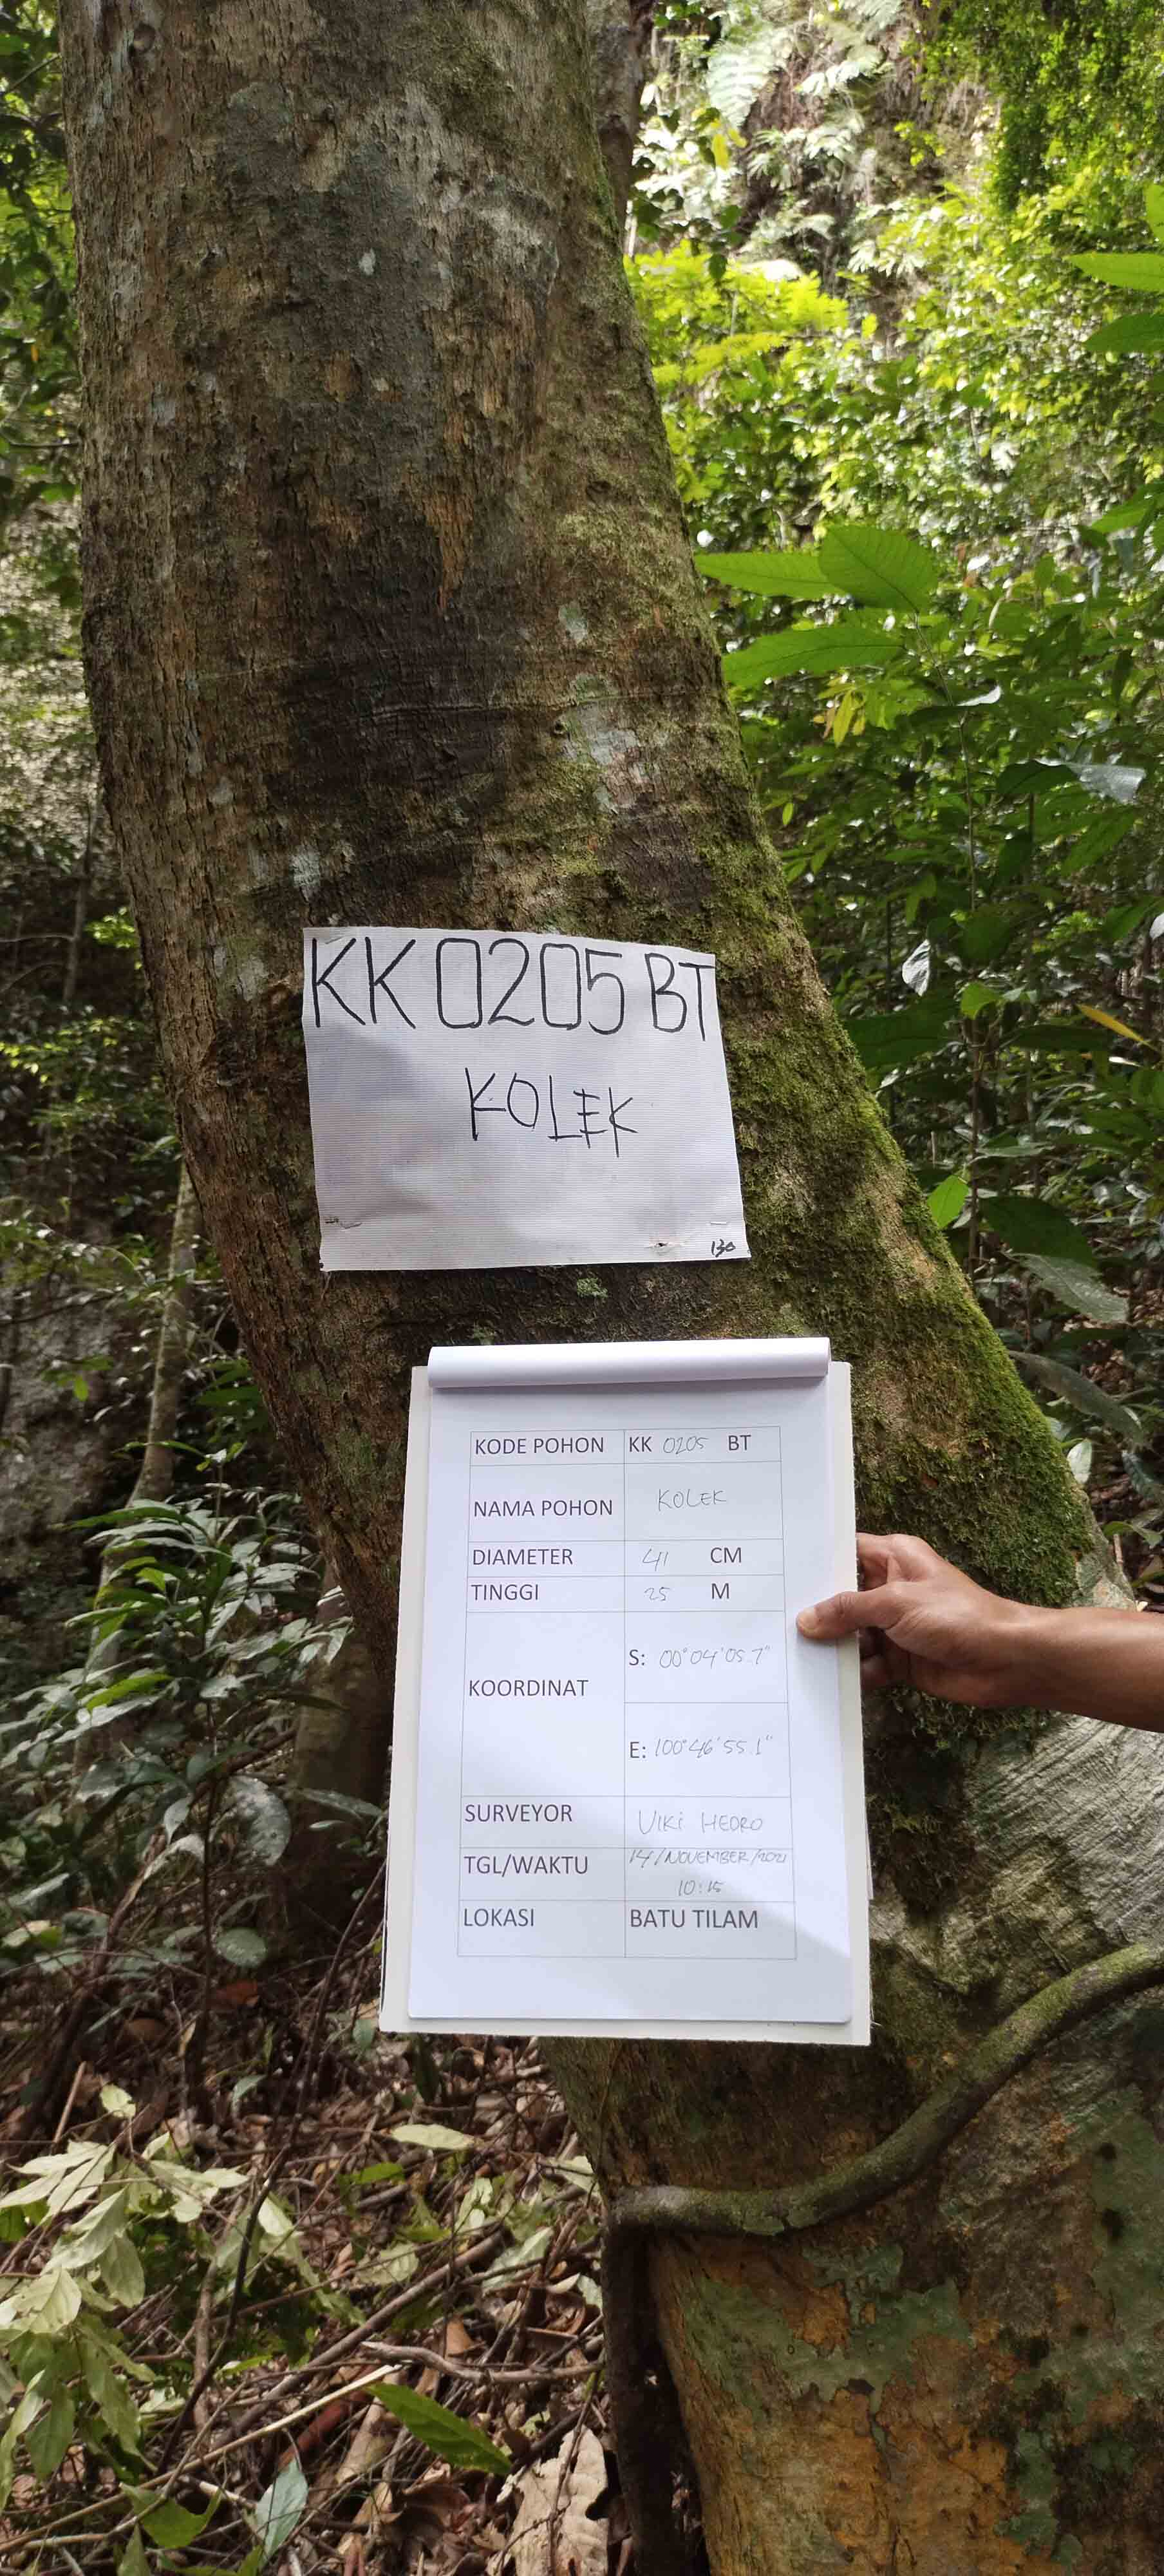 KK 0205 BT
KOLEK
130
KODE POHON KK 0205 BT
NAMA POHON KOLEK
DIAMETER 41 CM
TINGGI 25 M
KOORDINAT
S: 00°04'05.7"
E: 100°46'55.1"
SURVEYOR VIKI HEDRO
TGL/WAKTU 14/NOVEMBER/2021
10:15
LOKASI BATU TILAM